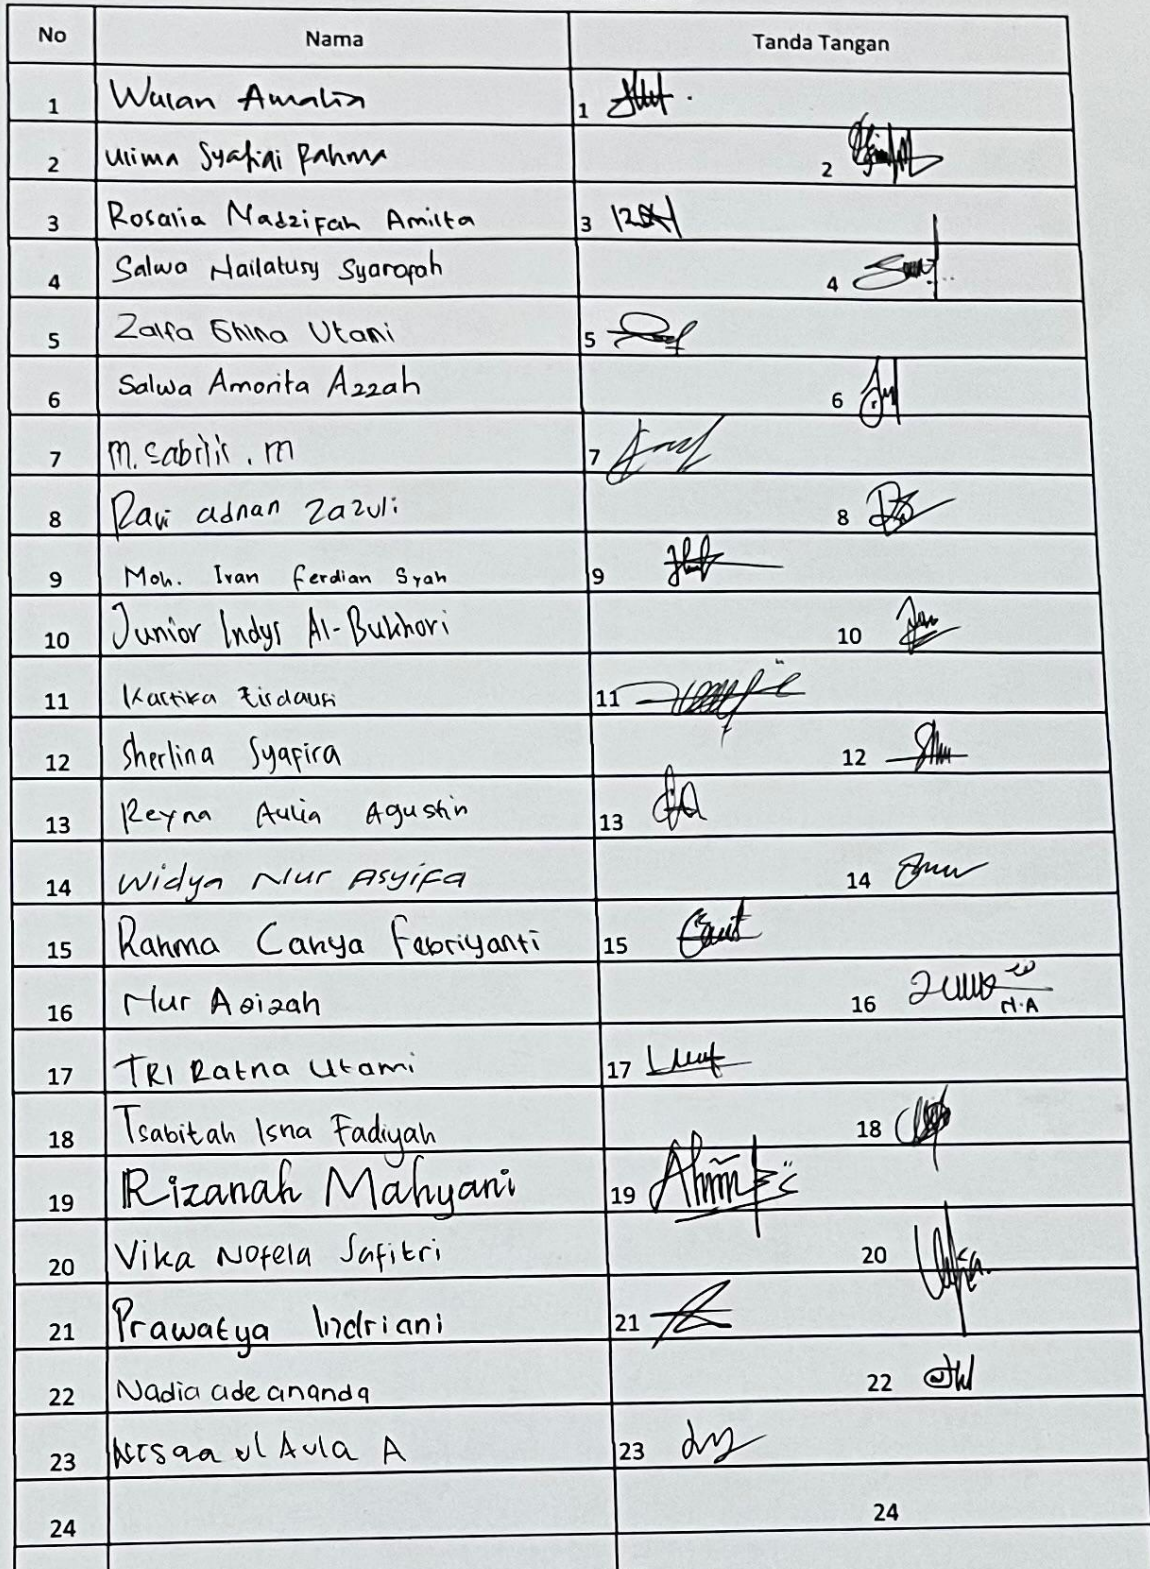 No Nama Tanda Tangan
1 Wulan Amalia 1
2 Ulima Syafiqi Rahma 2
3 Rosalia Nadzifah Amilta 3
4 Salwa Nailatusy Syarofah 4
5 Zalfa Ghina Utami 5
6 Salwa Amorita Azzah 6
7 M. Sabilil . M 7
8 Ravi adnan Zazuli 8
9 Moh. Ivan Ferdian Syah 9
10 Junior Indys Al-Bukhori 10
11 Kartika Firdausi 11
12 Sherlina Syafira 12
13 Reyna Aulia Agustin 13
14 Widya Nur Asyifa 14
15 Rahma Cahya Febriyanti 15
16 Nur Azizah 16 N.A
17 TRI Ratna Utami 17
18 Tsabitah Isna Fadiyah 18
19 Rizanah Mahyani 19
20 Vika Nofela Safitri 20
21 Prawatya Indriani 21
22 Nadia ade ananda 22
23 ul Aula A 23
24 24